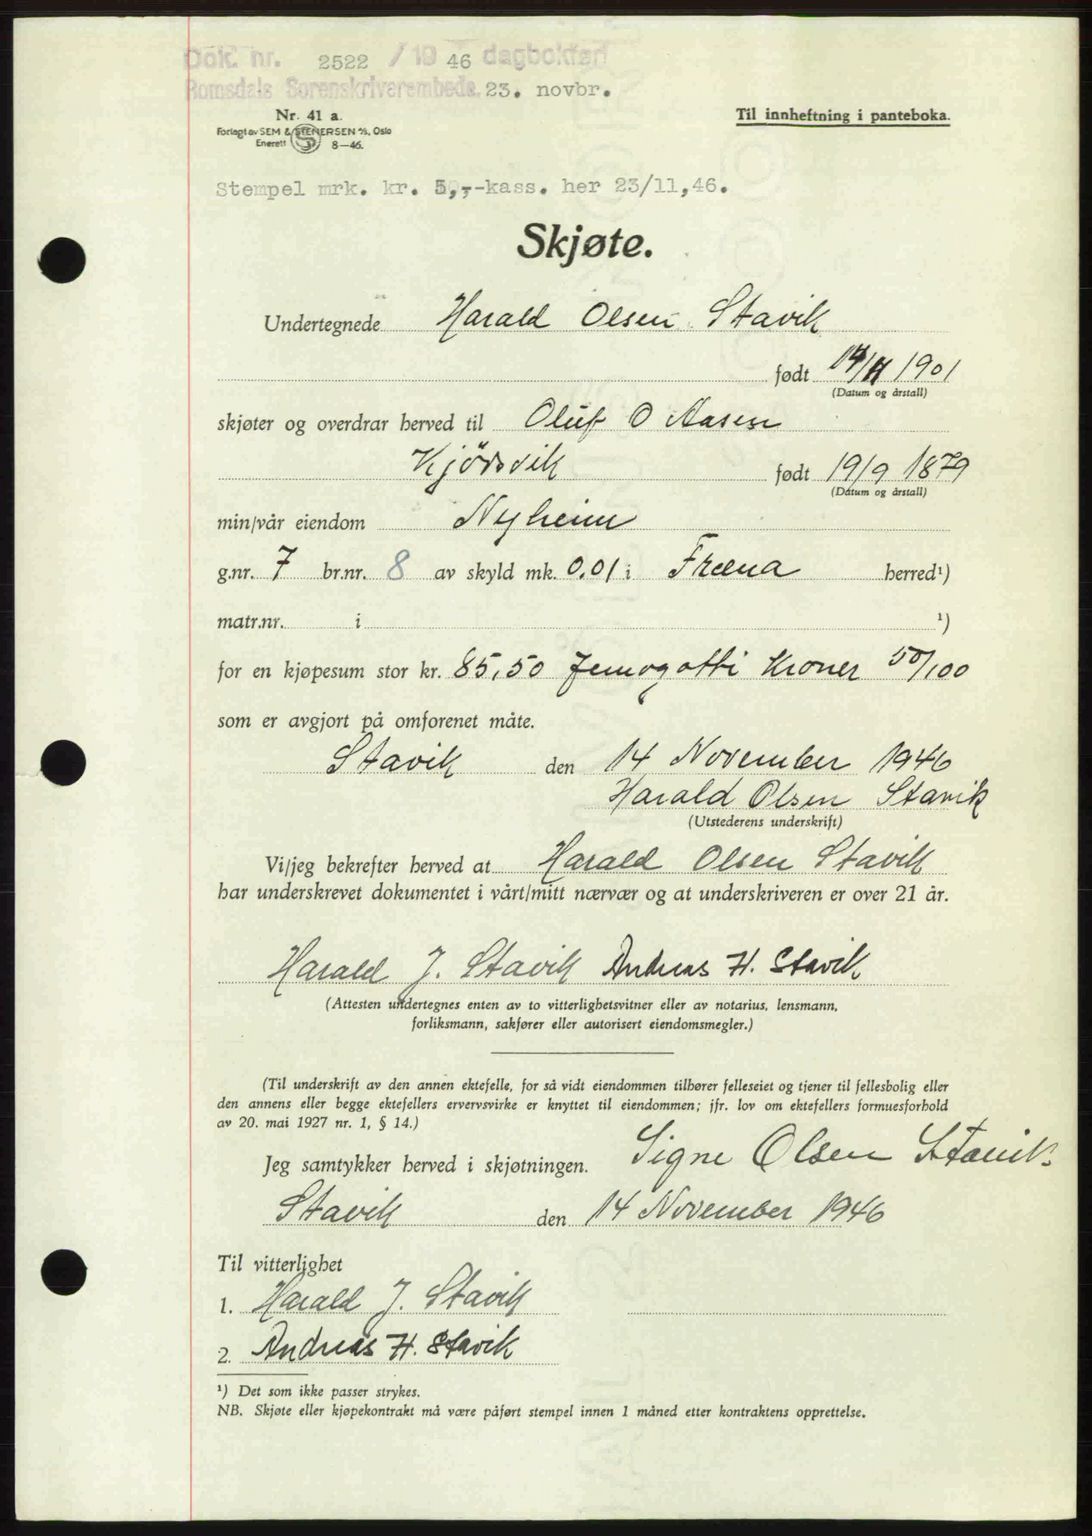 Dok. nr. 2522 / 19 46 dagbokført
Romsdals Sorenskriverembede 23. novbr.
Nr. 41 a.
Forlagt av SEM & STENERSEN A/S, Oslo
Enerett 8—46.
Til innheftning i panteboka.
Stempel mrk. kr. 5,-kass. her 23/11,46.
Skjøte.
Undertegnede Harald Olsen Stavik
født 14/11 1901
(Datum og årstall)
skjøter og overdrar herved til Oluf O Aasen
Kjörsvik født 19/9 1879
(Datum og årstall)
min/vår eiendom Nyheim
g.nr. 7 br.nr. 8 av skyld mk. 0.01 i Fræna herred¹)
matr.nr. i ¹)
for en kjøpesum stor kr. 85,50 femogotti Kroner 50/100
som er avgjort på omforenet måte.
Stavik den 14 November 1946
Harald Olsen Stavik
(Utstederens underskrift)
Vi/jeg bekrefter herved at Harald Olsen Stavik
har underskrevet dokumentet i vårt/mitt nærvær og at underskriveren er over 21 år.
Harald J. Stavik Andreas H. Stavik
(Attesten undertegnes enten av to vitterlighetsvitner eller av notarius, lensmann,
forliksmann, sakfører eller autorisert eiendomsmegler.)
(Til underskrift av den annen ektefelle, for så vidt eiendommen tilhører felleseiet og tjener til fellesbolig eller
den annens eller begge ektefellers ervervsvirke er knyttet til eiendommen; jfr. lov om ektefellers formuesforhold
av 20. mai 1927 nr. 1, § 14.)
Jeg samtykker herved i skjøtningen. Signe Olsen Stavik
Stavik den 14 November 1946
Til vitterlighet
1. Harald J. Stavik
2. Andreas H. Stavik
¹) Det som ikke passer strykes.
NB. Skjøte eller kjøpekontrakt må være påført stempel innen 1 måned etter kontraktens opprettelse.